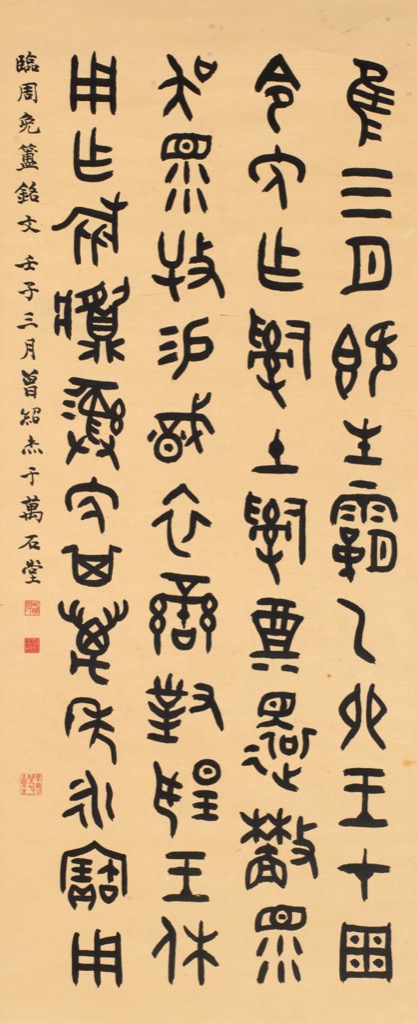 隹三月既生霸乙卯王才周
令免乍𤔲土𤔲奠還眔
吳眔牧易戠衣䜌對揚王休
用乍旅䵼彝免其萬年永寶用
臨周免簠銘文 壬子三月曾紹杰于萬石堂